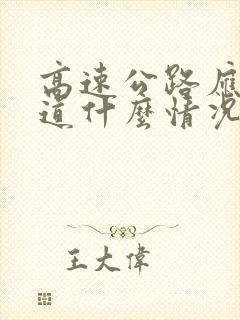 高速公路應
道什麼情況
王大偉